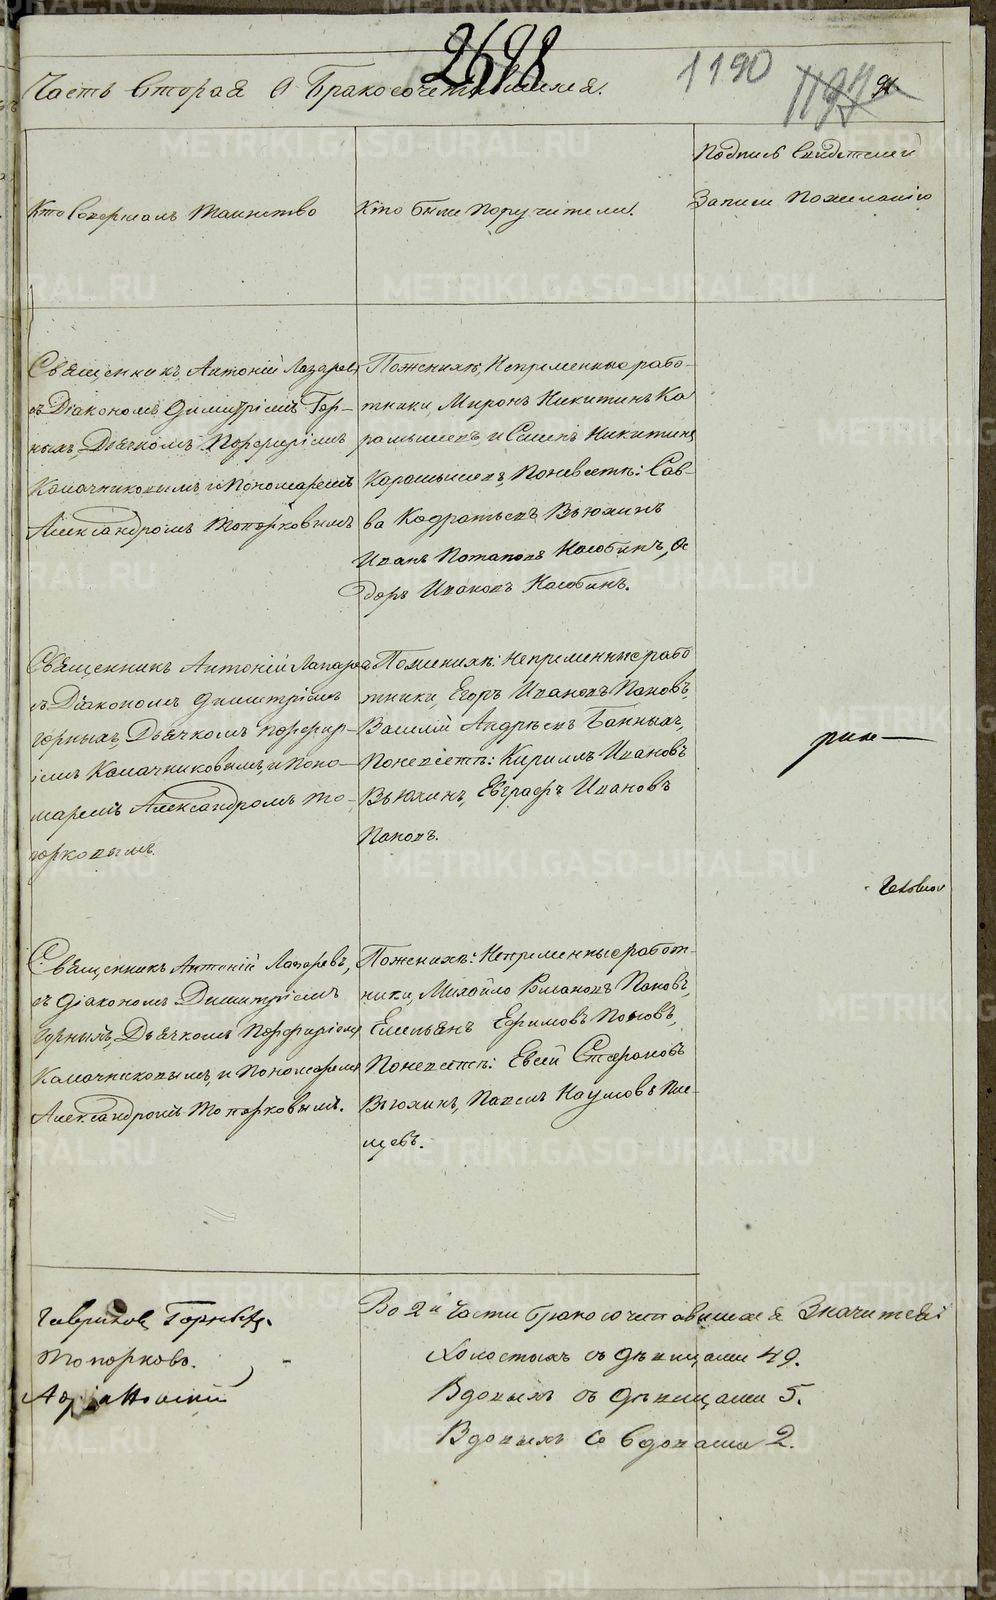 2698
1190
Часть вторая О Бракосочетавшихся.
Кто Совершалъ Таинство
Кто были Поручители.
Подпись Свидетелей
Записи Пожеланію
Священникъ Антоній Лазаревъ
съ Діакономъ Димитріемъ Гор-
нымъ, Дьячкомъ Порфиріемъ
Калачниковымъ, и Пономаремъ
Александромъ Топорковымъ
Поженихѣ, Непременные рабо-
тники, Миронъ Никитинъ Ка
рамышевъ, и Никитинъ
Карамышевъ, Поневѣстѣ: Сав-
ва Кодратьевъ Вьюхинъ
Иванъ Потаповъ Насобинъ, Ѳе
доръ Ивановъ
Священникъ Антоній Лазарева
съ Діакономъ Димитріемъ
горныхъ, Дьячкомъ порфир-
іемъ Калачниковымъ, и Поно-
маремъ Александромъ То-
порковымъ.
Поженихѣ: Непременные рабо
тники, Егоръ Ивановъ Пановъ,
Василій Андрѣевъ Банныхъ,
Поневѣстѣ: Кириллъ Ивановъ
Вьюхинъ, Евграфъ Ивановъ
Пановъ.
Священникъ Антоній Лазаревъ,
съ діакономъ Димитріемъ
Горнымъ, Дьячкомъ Порфиріемъ
Калачниковымъ, и Пономаремъ
Александромъ Топорковымъ.
Поженихѣ: Непременные работ-
ники, Михайло Пановъ,
Емельянъ Ефимовъ Пановъ,
Поневѣстѣ: Евсей Стефановъ
Вьюхинъ, Павелъ Наумовъ Пле-
щевъ.
Гавриловъ Горныхъ.
Топорковъ.
Во 2й Части бракосочетавшихся Значится:
Холостыхъ съ дѣвицами 49.
Вдовыхъ съ дѣвицами 5.
Вдовыхъ со вдовами 2.
METRIKI.GASO-URAL.RU